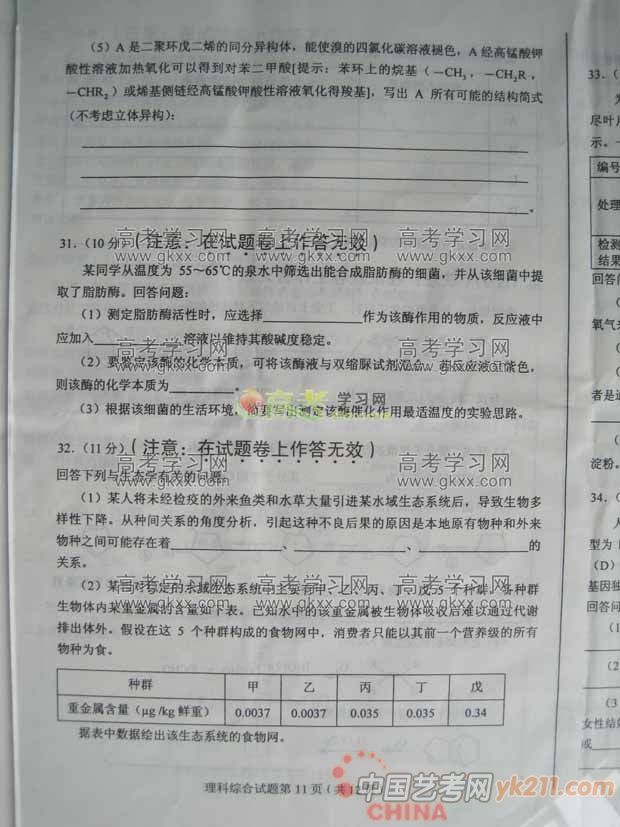 （5）A 是二聚环戊二烯的同分异构体，能使溴的四氯化碳溶液褪色，A 经高锰酸钾
酸性溶液加热氧化可以得到对苯二甲酸[提示：苯环上的烷基（—CH3，—CH2R，
—CHR2）或烯基侧链经高锰酸钾酸性溶液氧化得羧基]，写出 A 所有可能的结构简式
（不考虑立体异构）：
。
31.（10 分）（注意：在试题卷上作答无效）
某同学从温度为 55~65℃的泉水中筛选出能合成脂肪酶的细菌，并从该细菌中提
取了脂肪酶。回答问题：
（1）测定脂肪酶活性时，应选择____作为该酶作用的物质，反应液中
应加入____溶液以维持其酸碱度稳定。
（2）要鉴定该酶的化学本质，可将该酶液与双缩脲试剂混合，若反应液呈紫色，
则该酶的化学本质为____。
（3）根据该细菌的生活环境，简要写出测定该酶催化作用最适温度的实验思路。
32.（11 分）（注意：在试题卷上作答无效）
回答下列与生态学有关的问题。
（1）某人将未经检疫的外来鱼类和水草大量引进某水域生态系统后，导致生物多
样性下降。从种间关系的角度分析，引起这种不良后果的原因是本地原有物种和外来
物种之间可能存在着____、____、____的
关系。
（2）某相对稳定的水域生态系统中主要有甲、乙、丙、丁、戊 5 个种群，各种群
生物体内某重金属的含量如下表。已知水中的该重金属被生物体吸收后难以通过代谢
排出体外。假设在这 5 个种群构成的食物网中，消费者只能以其前一个营养级的所有
物种为食。
种群 甲 乙 丙 丁 戊
重金属含量（μg /kg 鲜重） 0.0037 0.0037 0.035 0.035 0.34
据表中数据绘出该生态系统的食物网。
理科综合试题第 11 页（共 12
33.（
尽叶片
示。一
编号
处理
检测
结果
回答问
氧气
者是
淀粉。
34.（
型为
（D）
基因独
回答问
（1
（2
（3
女性结
或
高考学习网 高考学习网 高考学习网
www.gkxx.com www.gkxx.com www.gkxx.com
高考学习网 高考学习网
www.gkxx.com www.gkxx.com
高考 学习网
高考学习网 高考学习网
www.gkxx.com www.gkxx.com
高考学习网 高考学习网 高考学习网
www.gkxx.com www.gkxx.com www.gkxx.com
中国艺考网yk211.com
CHINA